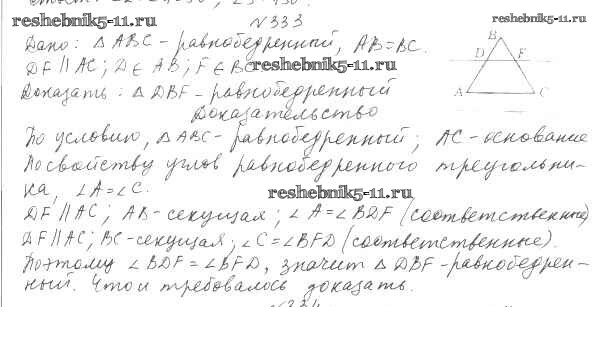 №333
reshebnik5-11.ru
reshebnik5-11.ru
Дано: △ ABC - равнобедренный, AB=BC.
DF ∥ AC; D ∈ AB; F ∈ BC
reshebnik5-11.ru
Доказать: △ DBF - равнобедренный
B
D F
A C
Доказательство
По условию, △ ABC - равнобедренный; AC - основание
По свойству углов равнобедренного треугольни-
ка, ∠A=∠C.
reshebnik5-11.ru
DF ∥ AC; AB - секущая; ∠A=∠BDF (соответственные)
DF ∥ AC; BC - секущая; ∠C=∠BFD (соответственные).
Поэтому ∠BDF=∠BFD, значит △ DBF - равнобедрен-
ный. Что и требовалось доказать.